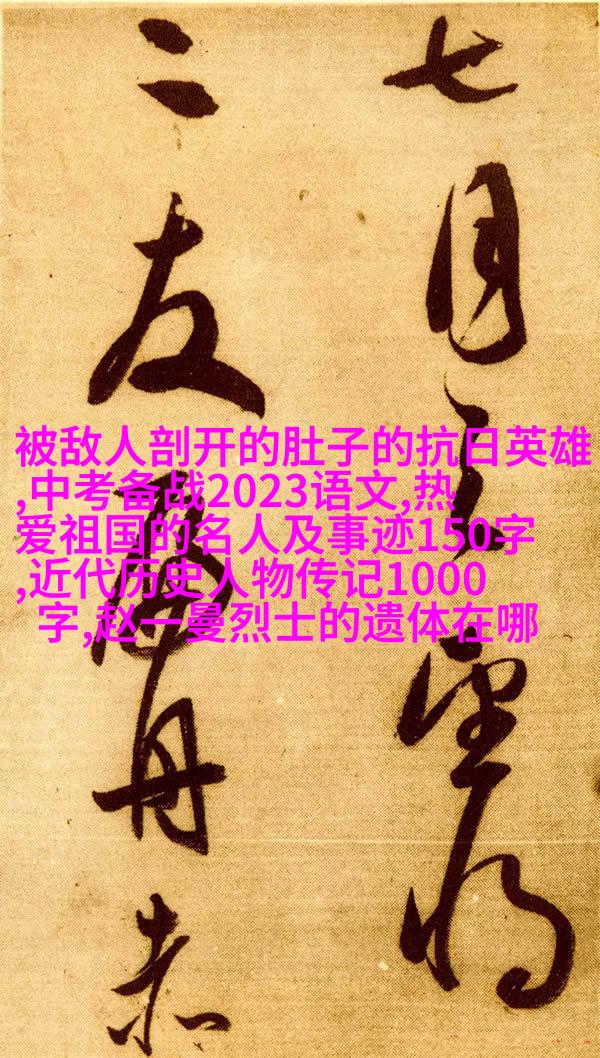 七月之望將
二友舟赤
被敌人剖开的肚子的抗日英雄
,中考备战2023语文,热
爱祖国的名人及事迹150字
,近代历史人物传记1000
字,赵一曼烈士的遗体在哪